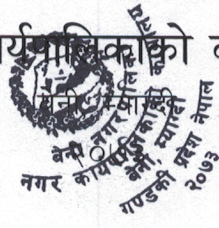 र्यपालिकाको
बेनी, म्याग्दी
बेनी नगरपालिका
नगर कार्यपालिकाको कार्यालय
बेनी, म्याग्दी
गण्डकी प्रदेश नेपाल
२०७३